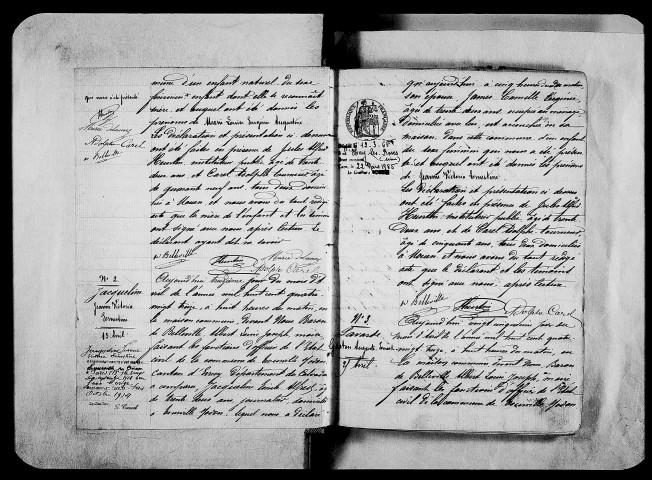 que nous a été présenté
Marie Launey
Adolphe Carel
de Belleville
mime d'un enfant naturel du sexe
féminin enfant dont elle se reconnaît
mère et auquel ont été donnés les
prénoms de Marie Louise Eugénie Augustine
Les déclaration et présentation ci dessus
ont été faites en présence de Jules Alfred
Heurtin instituteur public âgé de trente
deux ans et Carel Adolphe tourneur âgé
de quarante neuf ans, tous deux domici
liés à et nous avons du tout rédigé
acte que la mère de l'enfant et les témoins
ont signé avec nous après lecture le
déclarant ayant dit ne savoir
de Belleville Heurtin Marie Launey
Adolphe Carel
N° 2
Jacqueline
Jeanne Victoria
Ernestine
15 Avril
Octobre 1974
Aujourd'hui quinzième jour du mois d'A
vril de l'année mil huit cent quatre
vingt treize, à huit heures du matin, en
la maison commune Devant Nous Baron
de Belleville Albert Louis Joseph, maire
faisant les fonctions d'officier de l'Etat
civil de la commune de
Canton d' Département du Calvados
a comparu Jacqueline Louis Alfred, âgé
de trente ans journalier, domicilié
à lequel nous a déclaré
RÉPUBLIQUE FRANÇAISE
22 Mars 1985
que aujourd'hui à cinq heures du matin
son épouse James Camille Eugénie,
âgée de trente deux ans occupée au ménage
domiciliée avec lui est accouchée en sa
maison Dans cette commune d'un enfant
du sexe féminin qui nous a été pré
senté et auquel ont été donnés les prénoms
de Jeanne Victoria Ernestine
Les Déclaration et présentation ci dessus
ont été faites en présence de Jules Alfred
Heurtin instituteur public âgé de trente
Deux ans et de Carel Adolphe tourneur,
âgé de cinquante ans, tous deux Domiciliés
à et nous avons du tout rédigé
acte que le déclarant et les témoins
ont signé avec nous, après lecture
de Belleville Heurtin Adolphe Carel
N° 3
Gaston Auguste
Avril
Aujourd'hui vingt cinquième jour du
mois d'Avril de l'année mil huit cent quatre
vingt treize, à huit heures du matin, en
la maison commune Devant nous Baron
de Belleville Albert Louis Joseph, maire
faisant les fonctions d'officier de l'Etat
civil de la commune de